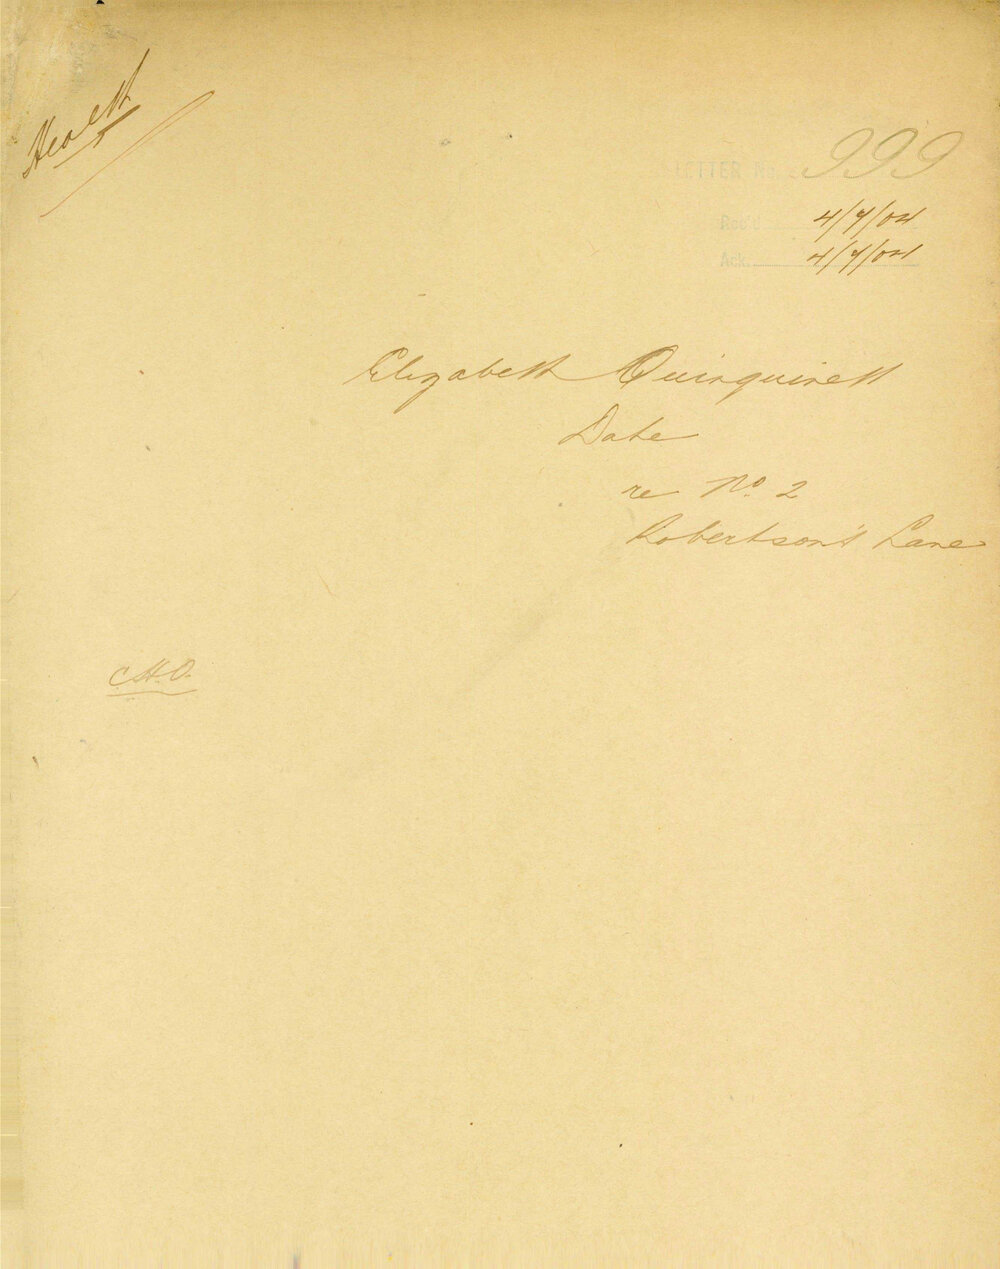 Health
LETTER No. 999
Rec'd 4/7/04
Ack. 4/7/04
Elizabeth Quinquinett
Date
re No. 2
Robertson's Lane
C.H.O.